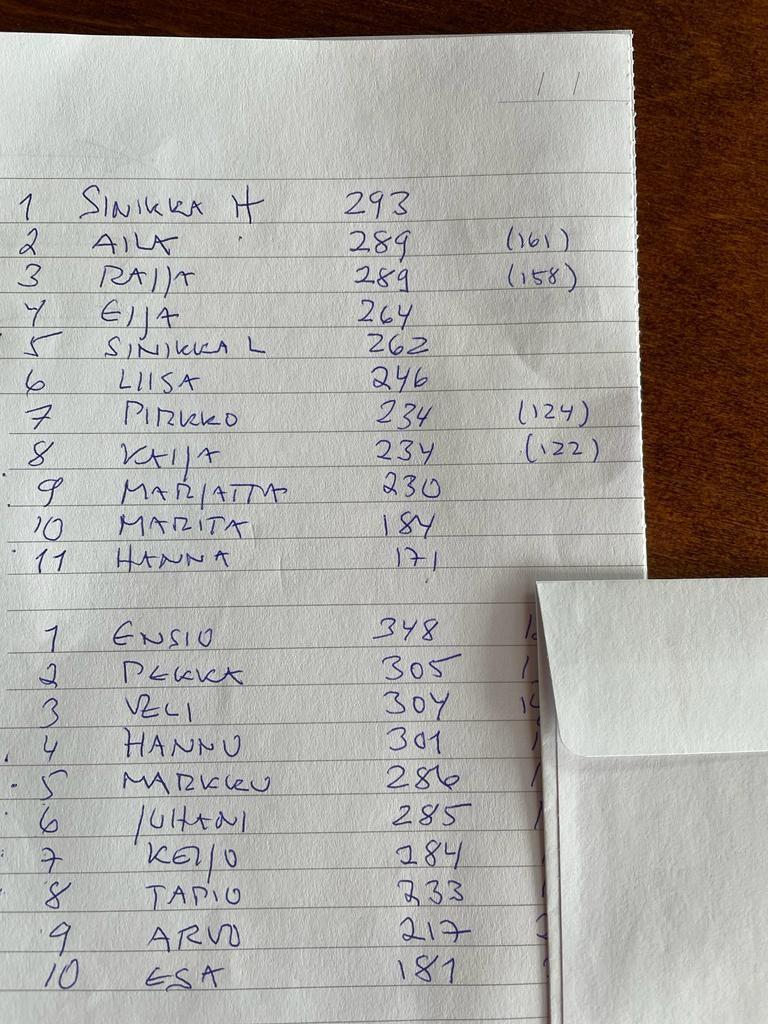 / /
1 SINIKKA H 293
2 AILA 289 (161)
3 RAIJA 289 (158)
4 EIJA 264
5 SINIKKA L 262
6 LIISA 246
7 PIRKKO 234 (124)
8 KAIJA 234 (122)
9 MARJATTA 230
10 MARITA 184
11 HANNA 171
1 ENSIO 348
2 PEKKA 305
3 VELI 304
4 HANNU 301
5 MARKKU 286
6 JUHANI 285
7 KEIJO 284
8 TAPIO 233
9 ARVO 217
10 ESA 181